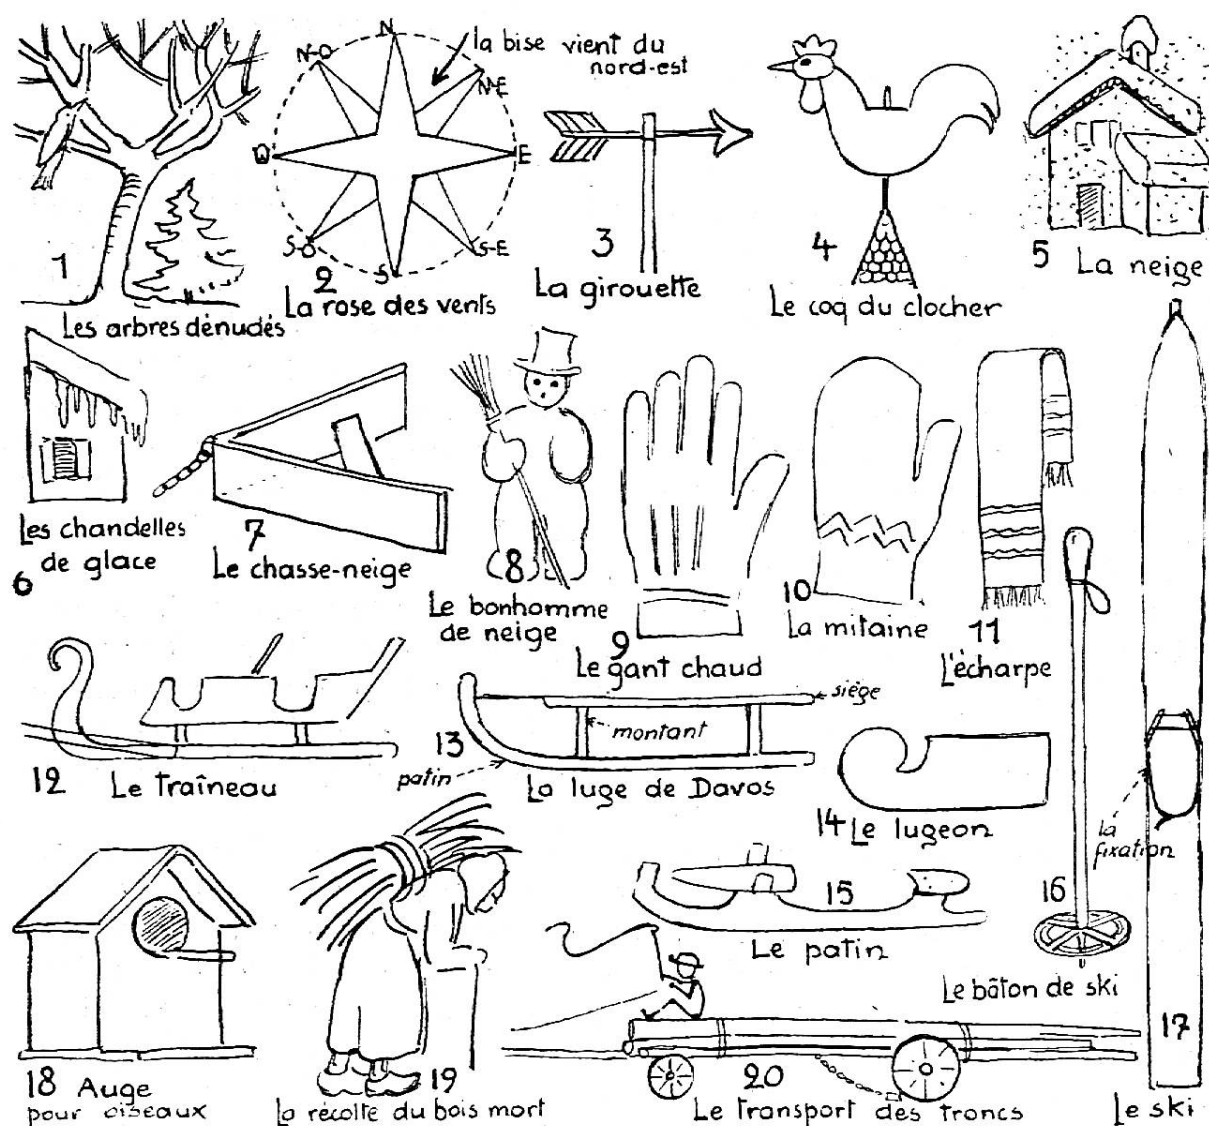 N
N-O
N-E
O
E
S-O
S-E
S
la bise vient du
nord-est
1
Les arbres dénudés
2
La rose des vents
3
La girouette
4
Le coq du clocher
5
La neige
6
Les chandelles
de glace
7
Le chasse-neige
8
Le bonhomme
de neige
9
Le gant chaud
10
La mitaine
11
L'écharpe
12
Le traîneau
13
siège
montant
patin
La luge de Davos
14
Le lugeon
15
Le patin
16
Le bâton de ski
la
fixation
17
Le ski
18 Auge
pour oiseaux
19
La récolte du bois mort
20
Le transport des troncs